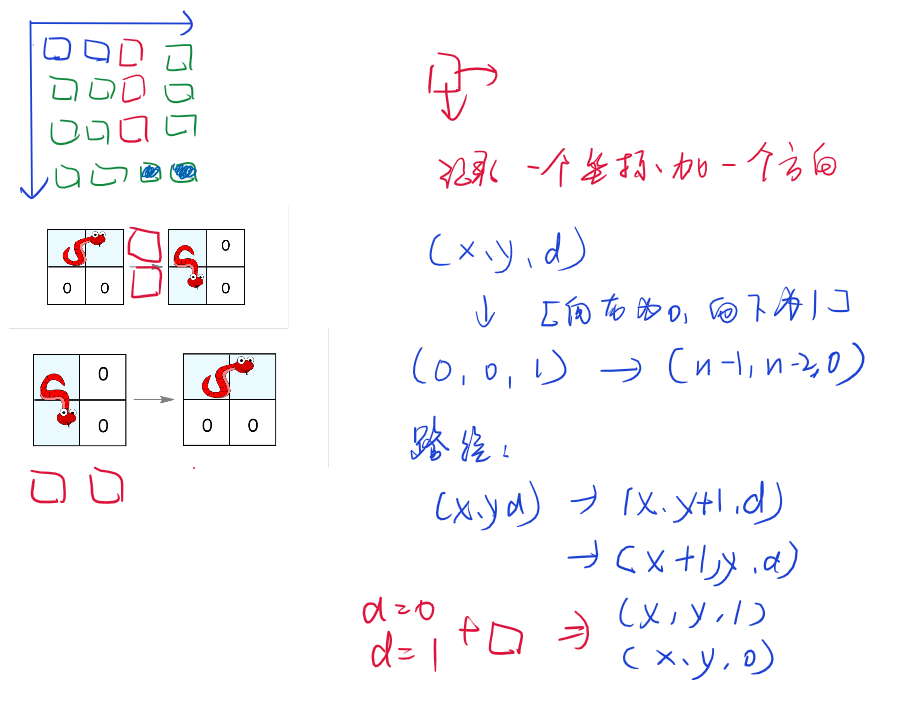 0
0 0 0
0
0 0 0
记录一个坐标、加一个方向
(x、y、d)
↓ [向右为0, 向下为1]
(0, 0, 1) → (n-1, n-2, 0)
路径:
(x.y d) → (x.y+1.d)
→ (x+1,y.d)
d=0
d=1 + □ ⇒ (x,y,1)
(x.y.0)